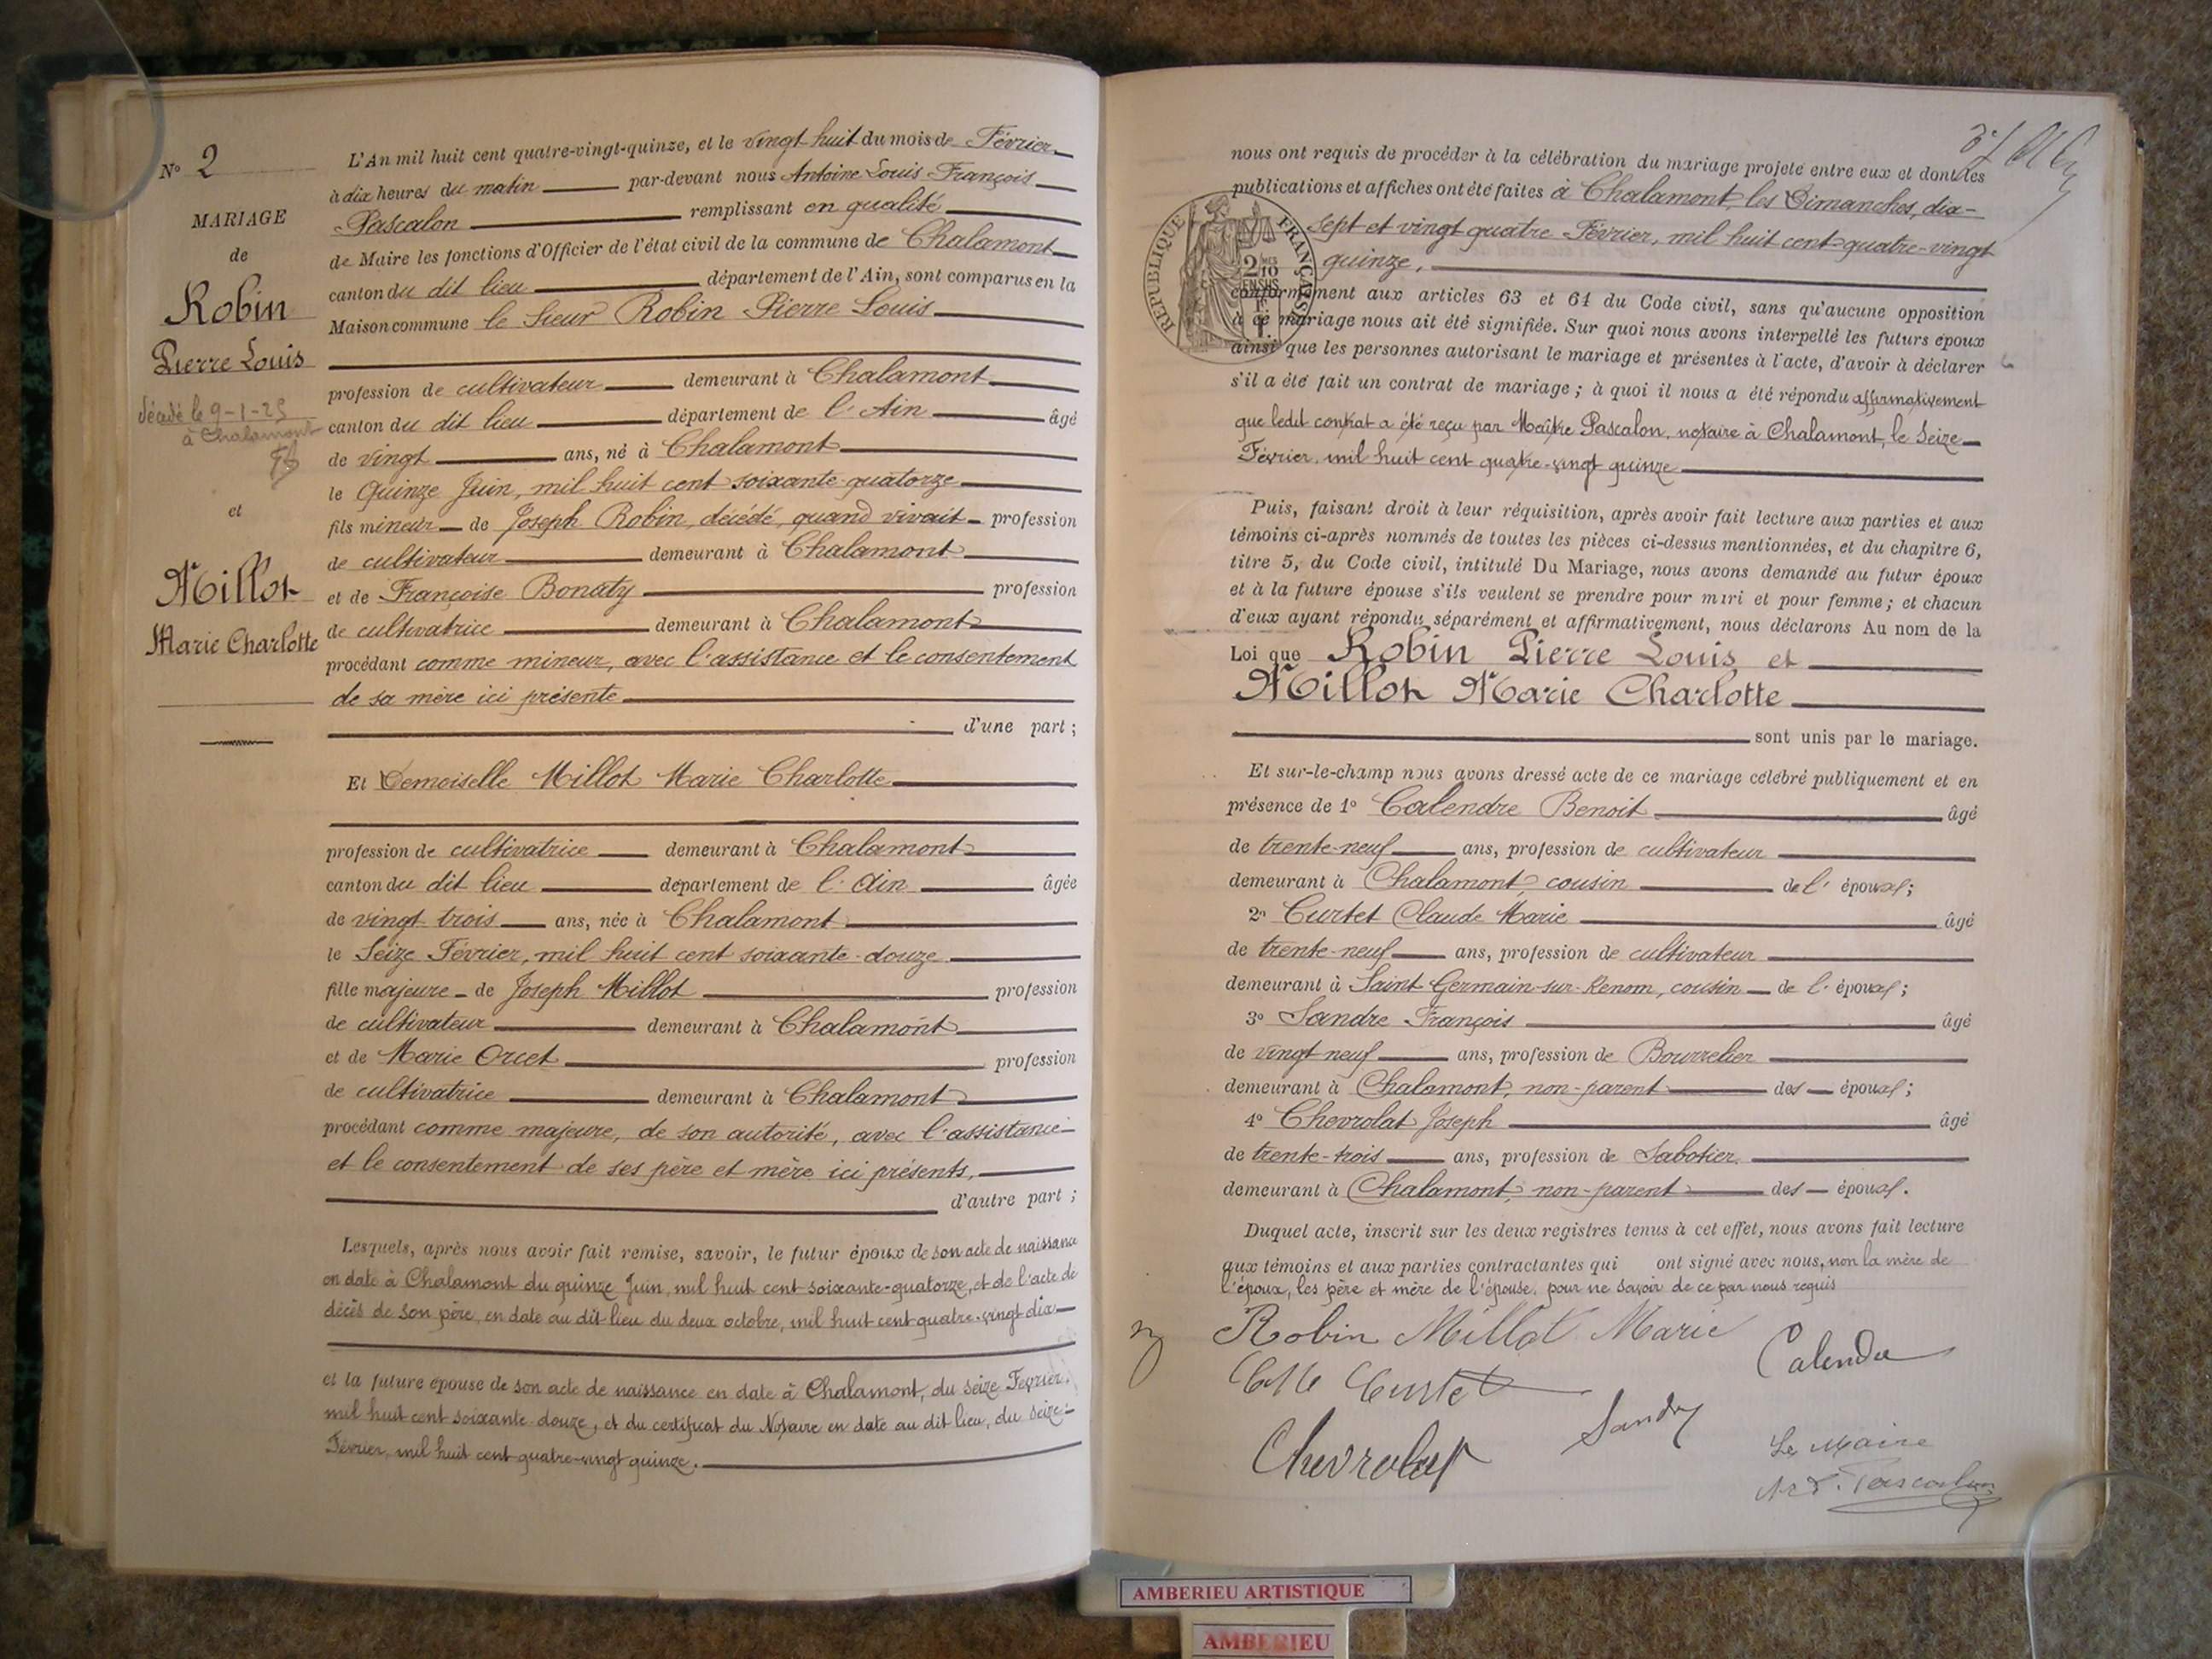 N° 2
MARIAGE
de
Robin
Pierre Louis
décédé le 9-1-25
à Chalamont
et
Millot
Marie Charlotte
L'An mil huit cent quatre-vingt-quinze, et le vingt huit du mois de Février
à dix heures du matin par-devant nous Antoine Louis François
Pascalon remplissant en qualité
de Maire les fonctions d'Officier de l'état civil de la commune de Chalamont
canton du dit lieu département de l'Ain, sont comparus en la
Maison commune le sieur Robin Pierre Louis
profession de cultivateur demeurant à Chalamont
canton du dit lieu département de l'Ain âgé
de vingt ans, né à Chalamont
le Quinze Juin, mil huit cent soixante-quatorze
fils mineur de Joseph Robin, décédé, quand vivait profession
de cultivateur demeurant à Chalamont
et de Françoise Bonaty profession
de cultivatrice demeurant à Chalamont
procédant comme mineur, avec l'assistance et le consentement
de sa mère ici présente
d'une part ;
Et Demoiselle Millot Marie Charlotte
profession de cultivatrice demeurant à Chalamont
canton du dit lieu département de l'Ain âgée
de vingt trois ans, née à Chalamont
le Seize Février, mil huit cent soixante-douze
fille majeure de Joseph Millot profession
de cultivateur demeurant à Chalamont
et de Marie Orcet profession
de cultivatrice demeurant à Chalamont
procédant comme majeure, de son autorité, avec l'assistance
et le consentement de ses père et mère ici présents,
d'autre part ;
Lesquels, après nous avoir fait remise, savoir, le futur époux de son acte de naissance
en date à Chalamont du quinze Juin, mil huit cent soixante-quatorze, et de l'acte de
décès de son père, en date au dit lieu du deux octobre, mil huit cent quatre-vingt dix
et la future épouse de son acte de naissance en date à Chalamont, du Seize Février,
mil huit cent soixante-douze, et du certificat du Notaire en date au dit lieu, du seize
Février, mil huit cent quatre-vingt quinze.
nous ont requis de procéder à la célébration du mariage projeté entre eux et dont les
publications et affiches ont été faites à Chalamont, les Dimanches, dix-
sept et vingt quatre Février, mil huit cent quatre-vingt
quinze,
RÉPUBLIQUE FRANÇAISE
2 MES 10
EN SUS
conformément aux articles 63 et 64 du Code civil, sans qu'aucune opposition
à ce mariage nous ait été signifiée. Sur quoi nous avons interpellé les futurs époux
ainsi que les personnes autorisant le mariage et présentes à l'acte, d'avoir à déclarer
s'il a été fait un contrat de mariage ; à quoi il nous a été répondu affirmativement
que ledit contrat a été reçu par Maître Pascalon, notaire à Chalamont, le Seize
Février, mil huit cent quatre-vingt quinze
Puis, faisant droit à leur réquisition, après avoir fait lecture aux parties et aux
témoins ci-après nommés de toutes les pièces ci-dessus mentionnées, et du chapitre 6,
titre 5, du Code civil, intitulé Du Mariage, nous avons demandé au futur époux
et à la future épouse s'ils veulent se prendre pour mari et pour femme ; et chacun
d'eux ayant répondu séparément et affirmativement, nous déclarons Au nom de la
Loi que Robin Pierre Louis et
Millot Marie Charlotte
sont unis par le mariage.
Et sur-le-champ nous avons dressé acte de ce mariage célébré publiquement et en
présence de 1° Calendre Benoit âgé
de trente-neuf ans, profession de cultivateur
demeurant à Chalamont, cousin de l' époux ;
2° Curtet Claude Marie âgé
de trente-neuf ans, profession de cultivateur
demeurant à Saint-Germain-sur-Renom, cousin de l' époux ;
3° Sandre François âgé
de vingt neuf ans, profession de Bourrelier
demeurant à Chalamont, non-parent des époux ;
4° Chevrolat Joseph âgé
de trente-trois ans, profession de Sabotier
demeurant à Chalamont, non-parent des époux.
Duquel acte, inscrit sur les deux registres tenus à cet effet, nous avons fait lecture
aux témoins et aux parties contractantes qui ont signé avec nous, non la mère de
l'époux, les père et mère de l'épouse, pour ne savoir de ce par nous requis
Robin Millot Marie
Calendre
Curtet
Sandre
Chevrolat
Le Maire
Pascalon
AMBERIEU ARTISTIQUE
AMBERIEU